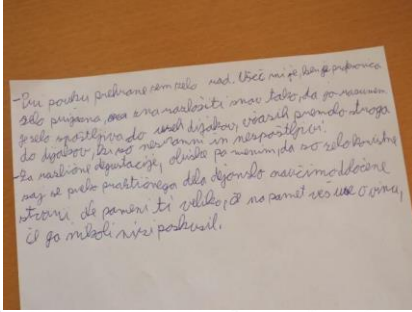 -Pri pouku prehrane sem zelo rad. Všeč mi je, ker je profesorica
zelo prijazna, zna razložiti snov tako, da jo razumem.
Je zelo spoštljiva do vseh dijakov, včasih premalo stroga
do dijakov, ki so nesramni in nespoštljivi.
-Za različne degustacije, obiske pa menim, da so zelo koristne
saj se preko praktičnega dela dejansko naučimo določene
stvari. Ne pomeni ti veliko, če na pamet veš vse o vinu,
če ga nikoli nisi poskusil.